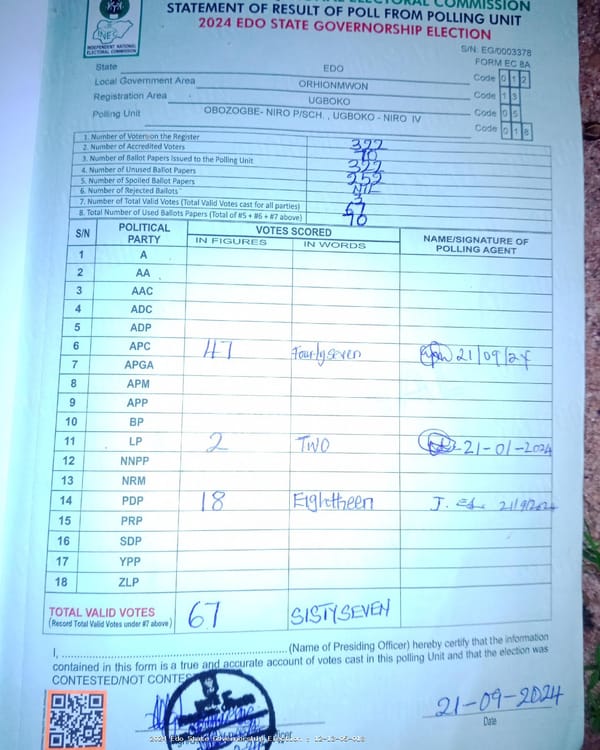 INDEPENDENT NATIONAL ELECTORAL COMMISSION
STATEMENT OF RESULT OF POLL FROM POLLING UNIT
2024 EDO STATE GOVERNORSHIP ELECTION
S/N: EG/0003378
FORM EC 8A
State EDO Code 0 1 2
Local Government Area ORHIONMWON Code 1 3
Registration Area UGBOKO Code 0 5
Polling Unit OBOZOGBE- NIRO P/SCH. , UGBOKO - NIRO IV Code 0 1 8
1. Number of Voters on the Register 322
2. Number of Accredited Voters 70
3. Number of Ballot Papers Issued to the Polling Unit 322
4. Number of Unused Ballot Papers 252
5. Number of Spoiled Ballot Papers NIL
6. Number of Rejected Ballots 3
7. Number of Total Valid Votes (Total Valid Votes cast for all parties) 67
8. Total Number of Used Ballots Papers (Total of #5 + #6 + #7 above) 70
S/N POLITICAL PARTY VOTES SCORED NAME/SIGNATURE OF POLLING AGENT
IN FIGURES IN WORDS
1 A
2 AA
3 AAC
4 ADC
5 ADP
6 APC 47 Fourtyseven 21/09/24
7 APGA
8 APM
9 APP
10 BP
11 LP 2 TWO 21-01-2024
12 NNPP
13 NRM
14 PDP 18 Eightheen J. 21/9/2024
15 PRP
16 SDP
17 YPP
18 ZLP
TOTAL VALID VOTES 67 SISTYSEVEN
(Record Total Valid Votes under #7 above)
I, (Name of Presiding Officer) hereby certify that the information
contained in this form is a true and accurate account of votes cast in this polling Unit and that the election was
CONTESTED/NOT CONTES
21-09-2024
Date
2024 Edo State Governorship Election